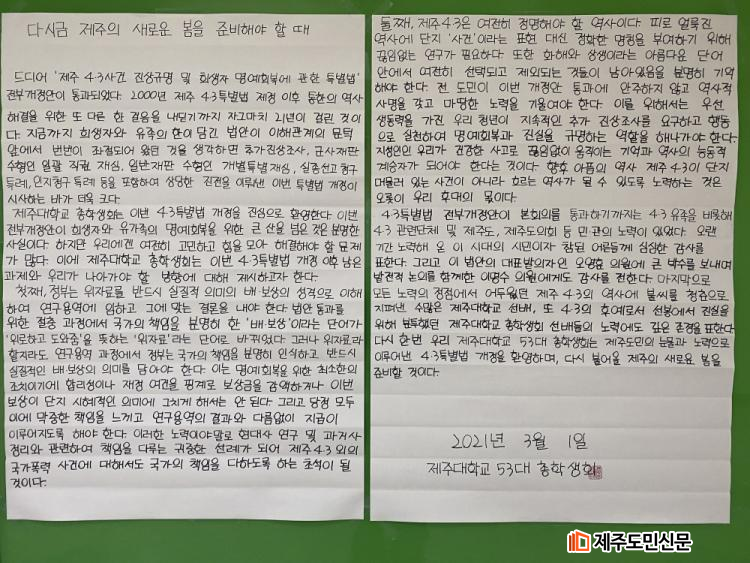 다시금 제주의 새로운 봄을 준비해야 할 때
드디어 '제주 4·3사건 진상규명 및 희생자 명예회복에 관한 특별법'
전부개정안이 통과되었다. 2000년 제주 4·3특별법 제정 이후 통한의 역사
해결을 위한 또 다른 한 걸음을 나딛기까지 자그마치 21년이 걸린 것이
다. 지금까지 희생자와 유족의 한이 담긴 법안이 이해관계의 문턱
앞에서 번번이 좌절되어 왔던 것을 생각하면 추가진상조사, 군사재판
수형인 일괄 직권 재심, 일반재판 수형인 개별특별재심, 실종선고 청구
특례, 인지청구 특례 등을 포함하여 상당한 진전을 이루낸 이번 특별법 개정이
시사하는 바가 더욱 크다.
제주대학교 총학생회는 이번 4·3특별법 개정을 진심으로 환영한다. 이번
전부개정안이 희생자와 유가족의 명예회복을 위한 큰 산을 넘은 것은 분명한
사실이다. 하지만 우리에겐 여전히 고민하고 힘을 모아 해결해야 할 문제
가 많다. 이에 제주대학교 총학생회는 이번 4·3특별법 개정 이후 남은
과제와 우리가 나아가야 할 방향에 대해 제시하고자 한다.
첫째, 정부는 위자료를 반드시 실질적 의미의 배·보상의 성격으로 이해
하여 연구용역에 임하고 그에 맞는 결론을 내야 한다. 법안 통과를
위한 절충 과정에서 국가의 책임을 분명히 한 '배·보상'이라는 단어가
'위로하고 도와줌'을 뜻하는 '위자료'라는 단어로 바뀌었다. 그러나 위자료라
할지라도 연구용역 과정에서 정부는 국가의 책임을 분명히 인식하고 반드시
실질적인 배·보상의 의미를 담아야 한다. 이는 명예회복을 위한 최소한의
조치이기에 합리성이나 재정 여건을 핑계로 보상금을 감액하거나 이번
보상이 단지 시혜적인 의미에 그치게 해서는 안 된다. 그리고 당정 모두
이에 막중한 책임을 느끼고 연구용역의 결과와 다름없이 지급이
이루어지도록 해야 한다. 이러한 노력이야말로 현대사 연구 및 과거사
정리와 관련하여 책임을 다루는 귀중한 선례가 되어 제주 4·3 외의
국가폭력 사건에 대해서도 국가의 책임을 다하도록 하는 초석이 될
것이다.
둘째, 제주 4·3은 여전히 정명해야 할 역사이다. 피로 얼룩진
역사에 단지 '사건'이라는 표현 대신 정확한 명칭을 부여하기 위해
끊임없는 연구가 필요하다. 또한 화해와 상생이라는 아름다운 단어
안에서 여전히 선택되고 제외되는 것들이 남아있음을 분명히 기억
해야 한다. 전 도민이 이번 개정안 통과에 안주하지 않고 역사적
사명을 갖고 마땅한 노력을 기울여야 한다. 이를 위해서는 우선
생동력을 가진 우리 청년이 지속적인 추가 진상조사를 요구하고 행동
으로 실천하여 명예회복과 진실을 규명하는 역할을 해나가야 한다.
지성인인 우리가 건강한 사고로 끊임없이 움직이는 기억과 역사의 능동적
계승자가 되어야 한다는 것이다. 향후 아픔의 역사 제주 4·3이 단지
머물러 있는 사건이 아니라 흐르는 역사가 될 수 있도록 노력하는 것은
오롯이 우리 후대의 몫이다.
4·3특별법 전부개정안이 본회의를 통과하기까지는 4·3 유족을 비롯해
4·3 관련단체 및 제주도, 제주도의회 등 민·관의 노력이 있었다. 오랜
기간 노력해 온 이 시대의 시민이자 참된 어른들께 심심한 감사를
표한다. 그리고 이 법안의 대표발의자인 오영훈 의원에 큰 박수를 보내며
발전적 논의를 함께한 이명수 의원에게도 감사를 전한다. 마지막으로
모든 노력의 정점에서 어두웠던 제주 4·3의 역사에 불씨를 청춘으로
지펴낸 수많은 제주대학교 선배, 또 4·3의 후예로서 선봉에서 진실을
위해 분투했던 제주대학교 총학생회 선배들의 노력에도 깊은 존경을 표한다.
다시 한번 우리 제주대학교 53대 총학생회는 제주도민의 눈물과 노력으로
이루어낸 4·3특별법 개정을 환영하며, 다시 불어올 제주의 새로운 봄을
준비할 것이다.
2021년 3월 1일
제주대학교 53대 총학생회
제주도민신문